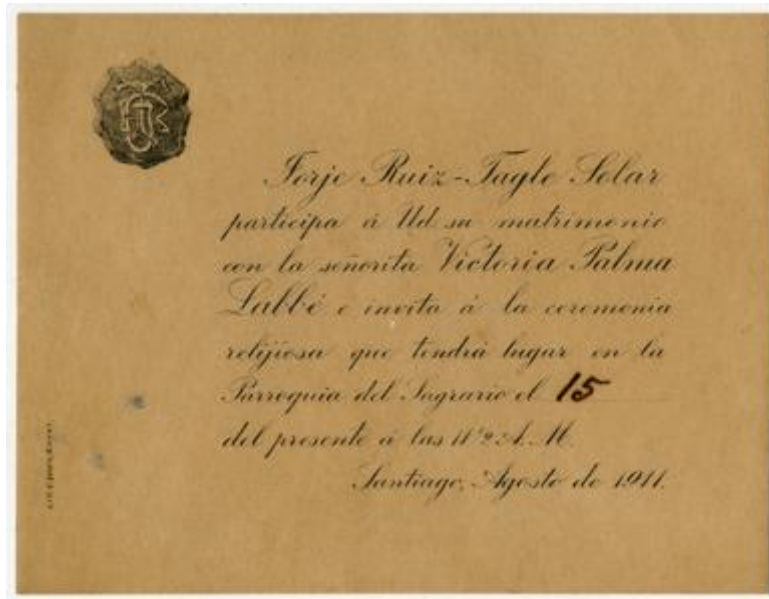 Jorje Ruiz-Tagle Solar
participa á Ud. su matrimonio
con la señorita Victoria Palma
Labbé é invita á la ceremonia
relijiosa que tendrá lugar en la
Parroquia del Sagrario el 15
del presente á las 11½ A. M.
Santiago, Agosto de 1911.